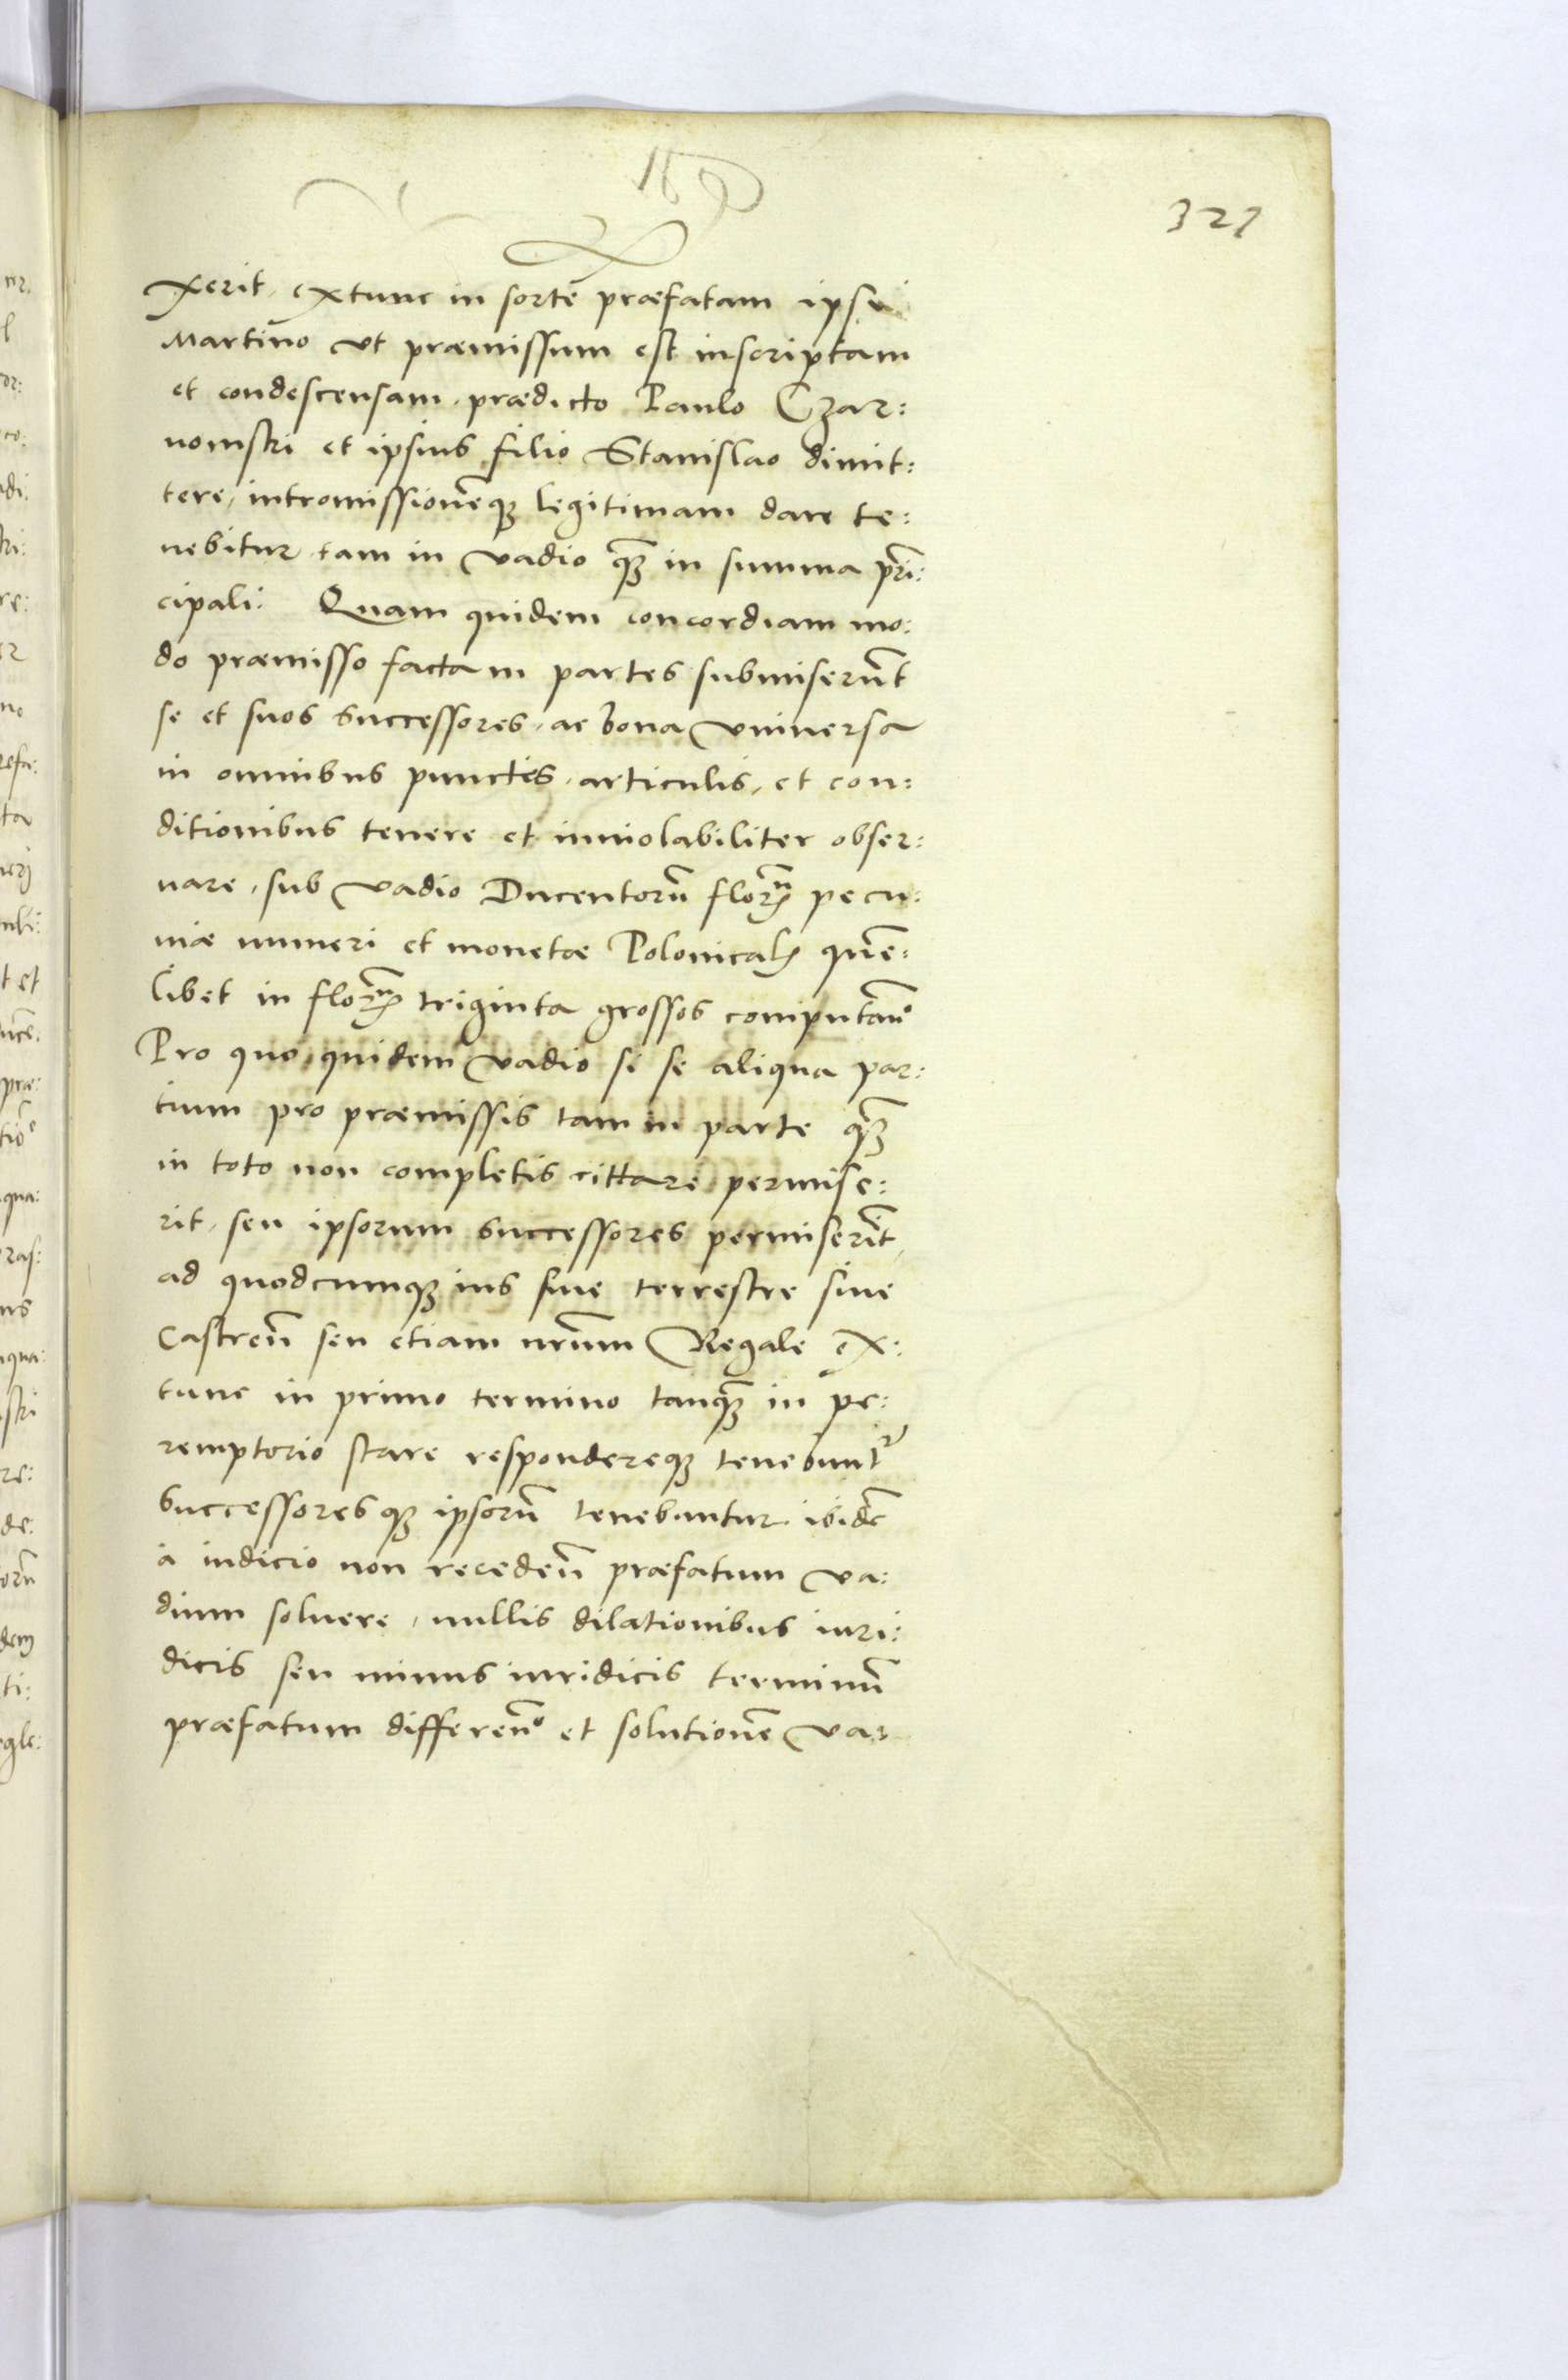 327
xerit, extunc in sortē præfatam ipsi
Martino ut præmissum est inscriptam
et condescensam, prædicto Paulo Czar:
nomski et ipsius filio Stanislao dimit:
tere, intromissionēq₃ legitimam dare te:
nebitur tam in vadio q̄₃ in summa pri̅:
cipali: Quam quidem concordiam mo:
do præmisso factam partes submiserūt
se et suos successores, ac bona vniuersa
in omnibus punctis, articulis, et con:
ditionibus tenere et inuiolabiliter obser:
uare, sub vadio Ducentorū florn̄ pecu:
niæ numeri et monetæ Polonicaľ quē:
libet in florn̄ triginta grossos computań°
Pro quo quidem vadio si se aliqua par:
tium pro præmissis tam in parte q̄₃
in toto non completis cittare permise:
rit, seu ipsorum successores permiserīt
ad quodcumq₃ ius siue terrestre siue
Castreń seu etiam nr̄um Regale ex:
tunc in primo termino tanq̄₃ in pe:
remptorio stare respondereq₃ tenebunt̉
Successores q₃ ipsorū tenebuntur ibidē
à iudicio non recedeń præfatum va:
dium soluere, nullis dilationibus iuri:
dicis seu minus iuridicis terminū
præfatum differeń° et solutionē va: